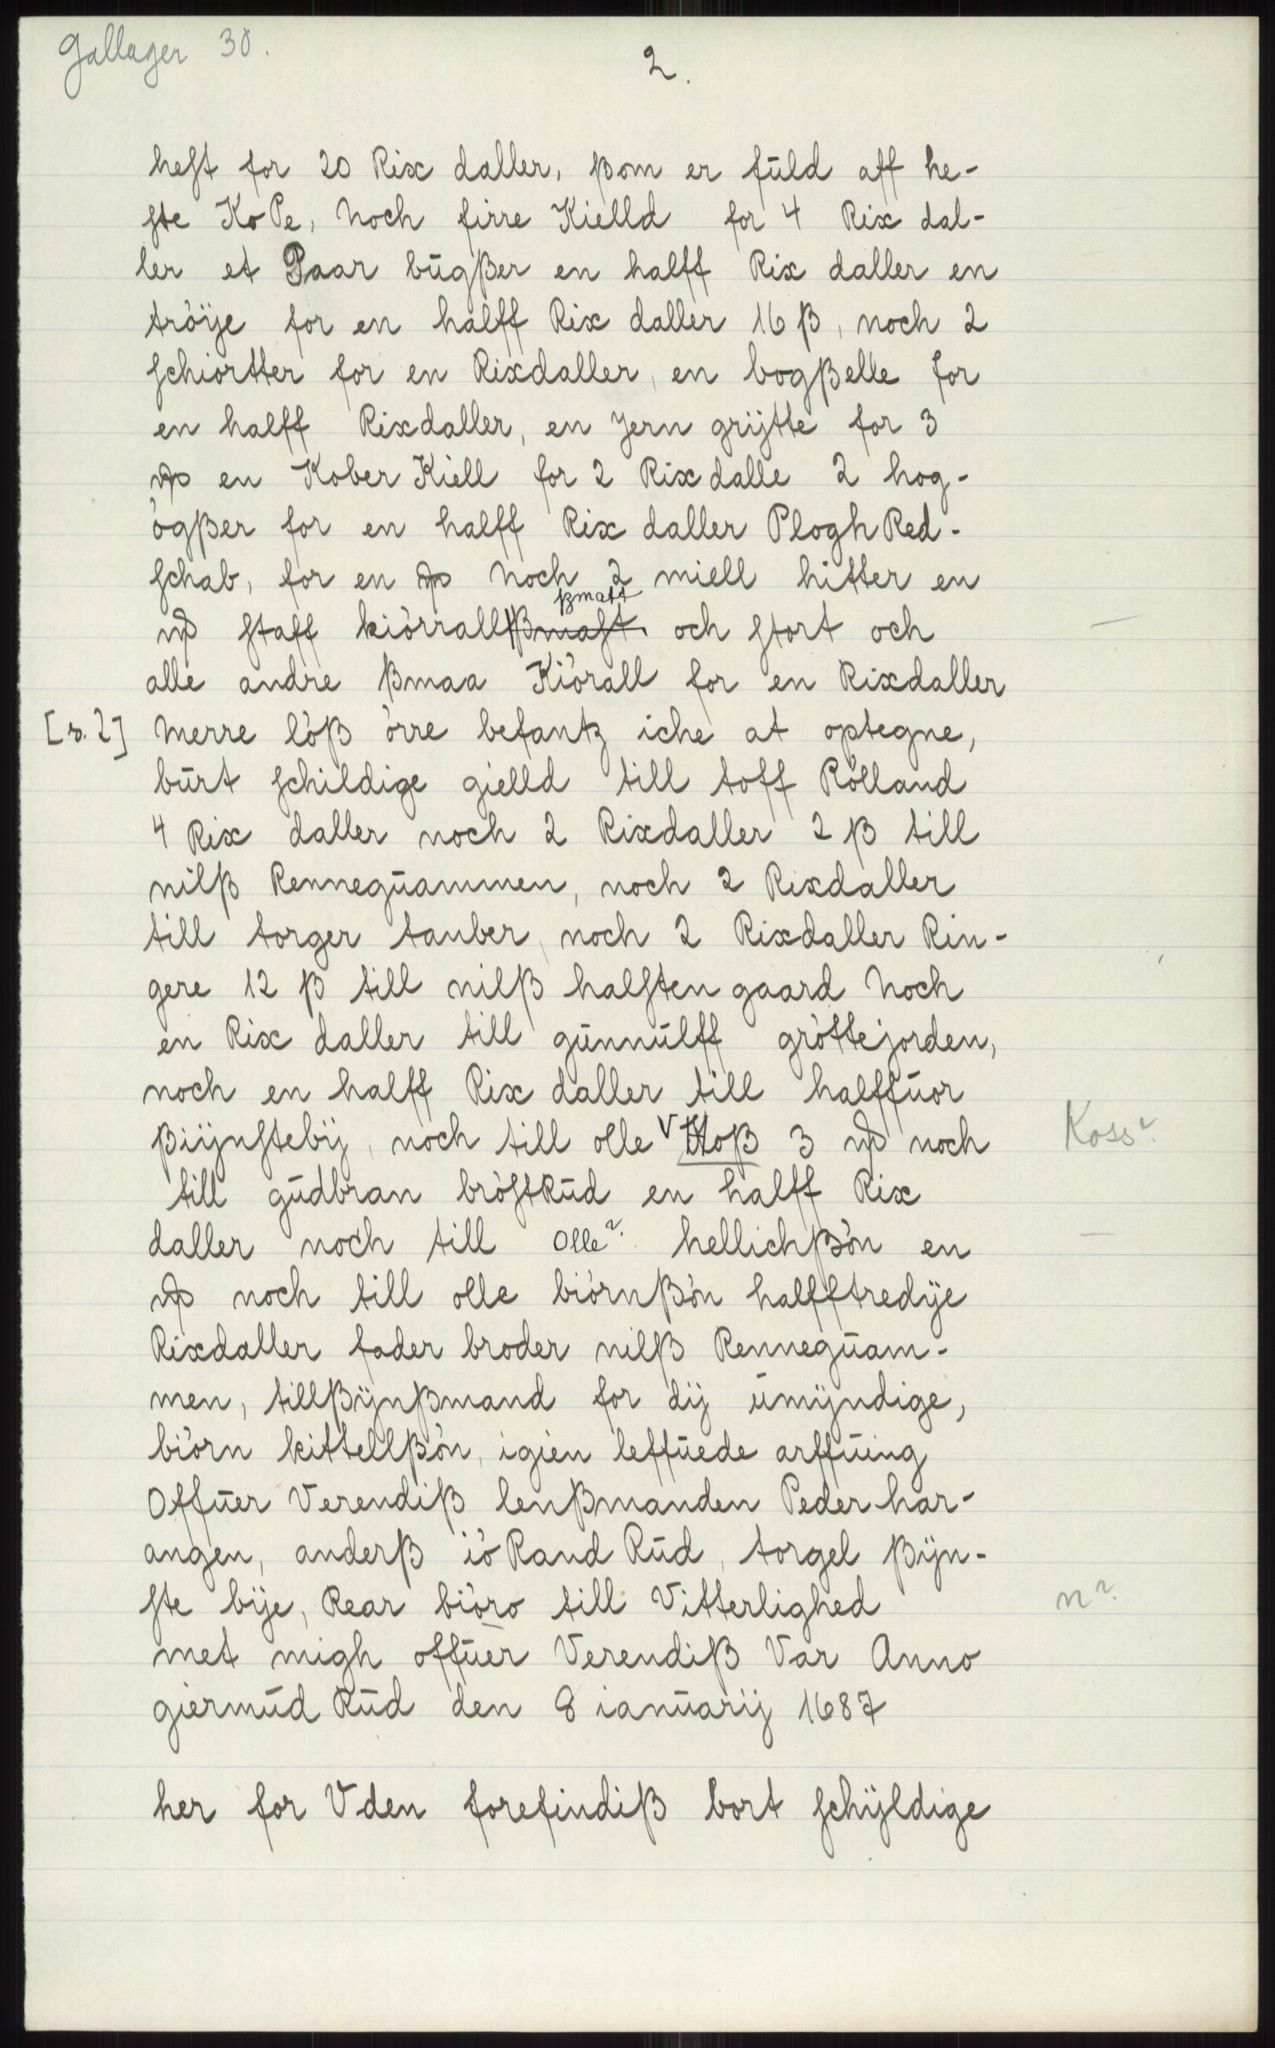 Gallager 30.
2.
heſt for 20 Rix daller, ßom er fūld aff he-
ſte KoPe, noch firre Kielld for 4 Rix dal-
ler et Paar būgßer en halff Rix daller en
tröÿe for en halff Rix daller 16 ß, noch 2
ſchiortter for en Rixdaller, en bogßelle for
en halff Rixdaller, en Jern grÿtte for 3
en Kober Kiell for 2 Rixdalle 2 hog-
ögßer for en halff Rix daller Plogh Red-
ſchab, for en noch 2 miell hitter en
ßmatt
ſtaff kiörrall ßmaſt och ſtort och
alle andre ßmaa Kiörall for en Rixdaller
[s. 2] Merre löß örre befantz iche at optegne,
būrt ſchildige gielld till toff Rölland
4 Rix daller noch 2 Rixdaller 2 ß till
nilß Renneqūammen, noch 2 Rixdaller
till torger tauber, noch 2 Rixdaller Rin-
gere 12 ß till nilß halſten gaard noch
en Rix daller till gūnnūlff gröttejorden,
noch en halff Rix daller till halffūor
ßiÿnſtebÿ, noch till olle Hoß 3 noch Koss?
till gūdbran bröſtRūd en halff Rix
daller noch till Olle? hellichßön en
noch till olle biörnßön halfftredÿe
Rixdaller fader broder nilß Renneqūam-
men, tillßÿnßmand for dÿ ūmÿndige,
biörn kittellßön, igien leffūede arffūing
Offūer Verendiß lenßmanden Peder har-
angen, anderß iö Rand Rūd, torgel ßÿn-
ſte bÿe, Rear biöro till Vitterlighed n?
met migh offūer Verendiß Var Anno
giermūd Rūd den 8 ianūarÿ 1687
her for Vden forefindiß bort ſchÿldige